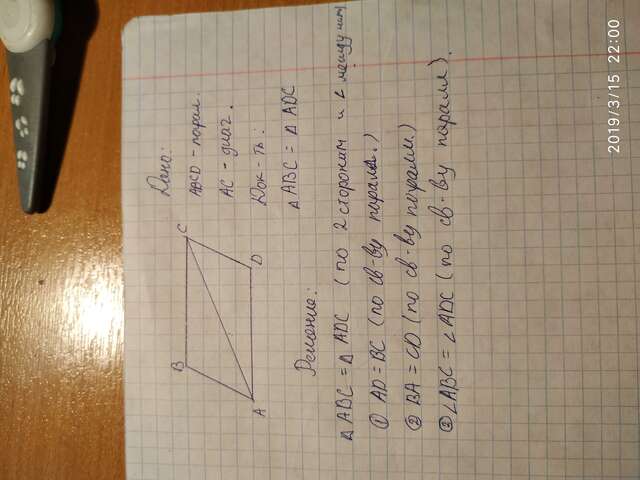 Дано:
ABCD - парал.
AC - диаг.
Док-ть:
△ABC = △ADC
B
C
A
D
Решение:
△ABC = △ADC (по 2 сторонам и ∠ между ними
① AD = BC (по св-ву паралл.)
② BA = CD (по св-ву паралл.)
③ ∠ABC = ∠ADC (по св-ву паралл).
2019/3/15 22:00